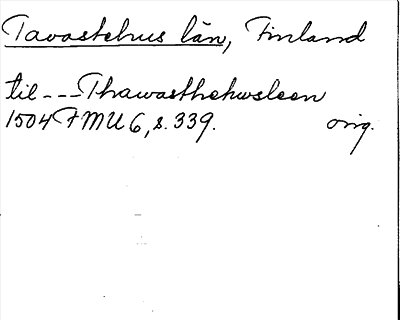 Tavastehus län, Finland
til --- Thawasthehwsleen
1504 FMU 6, s. 339. orig.